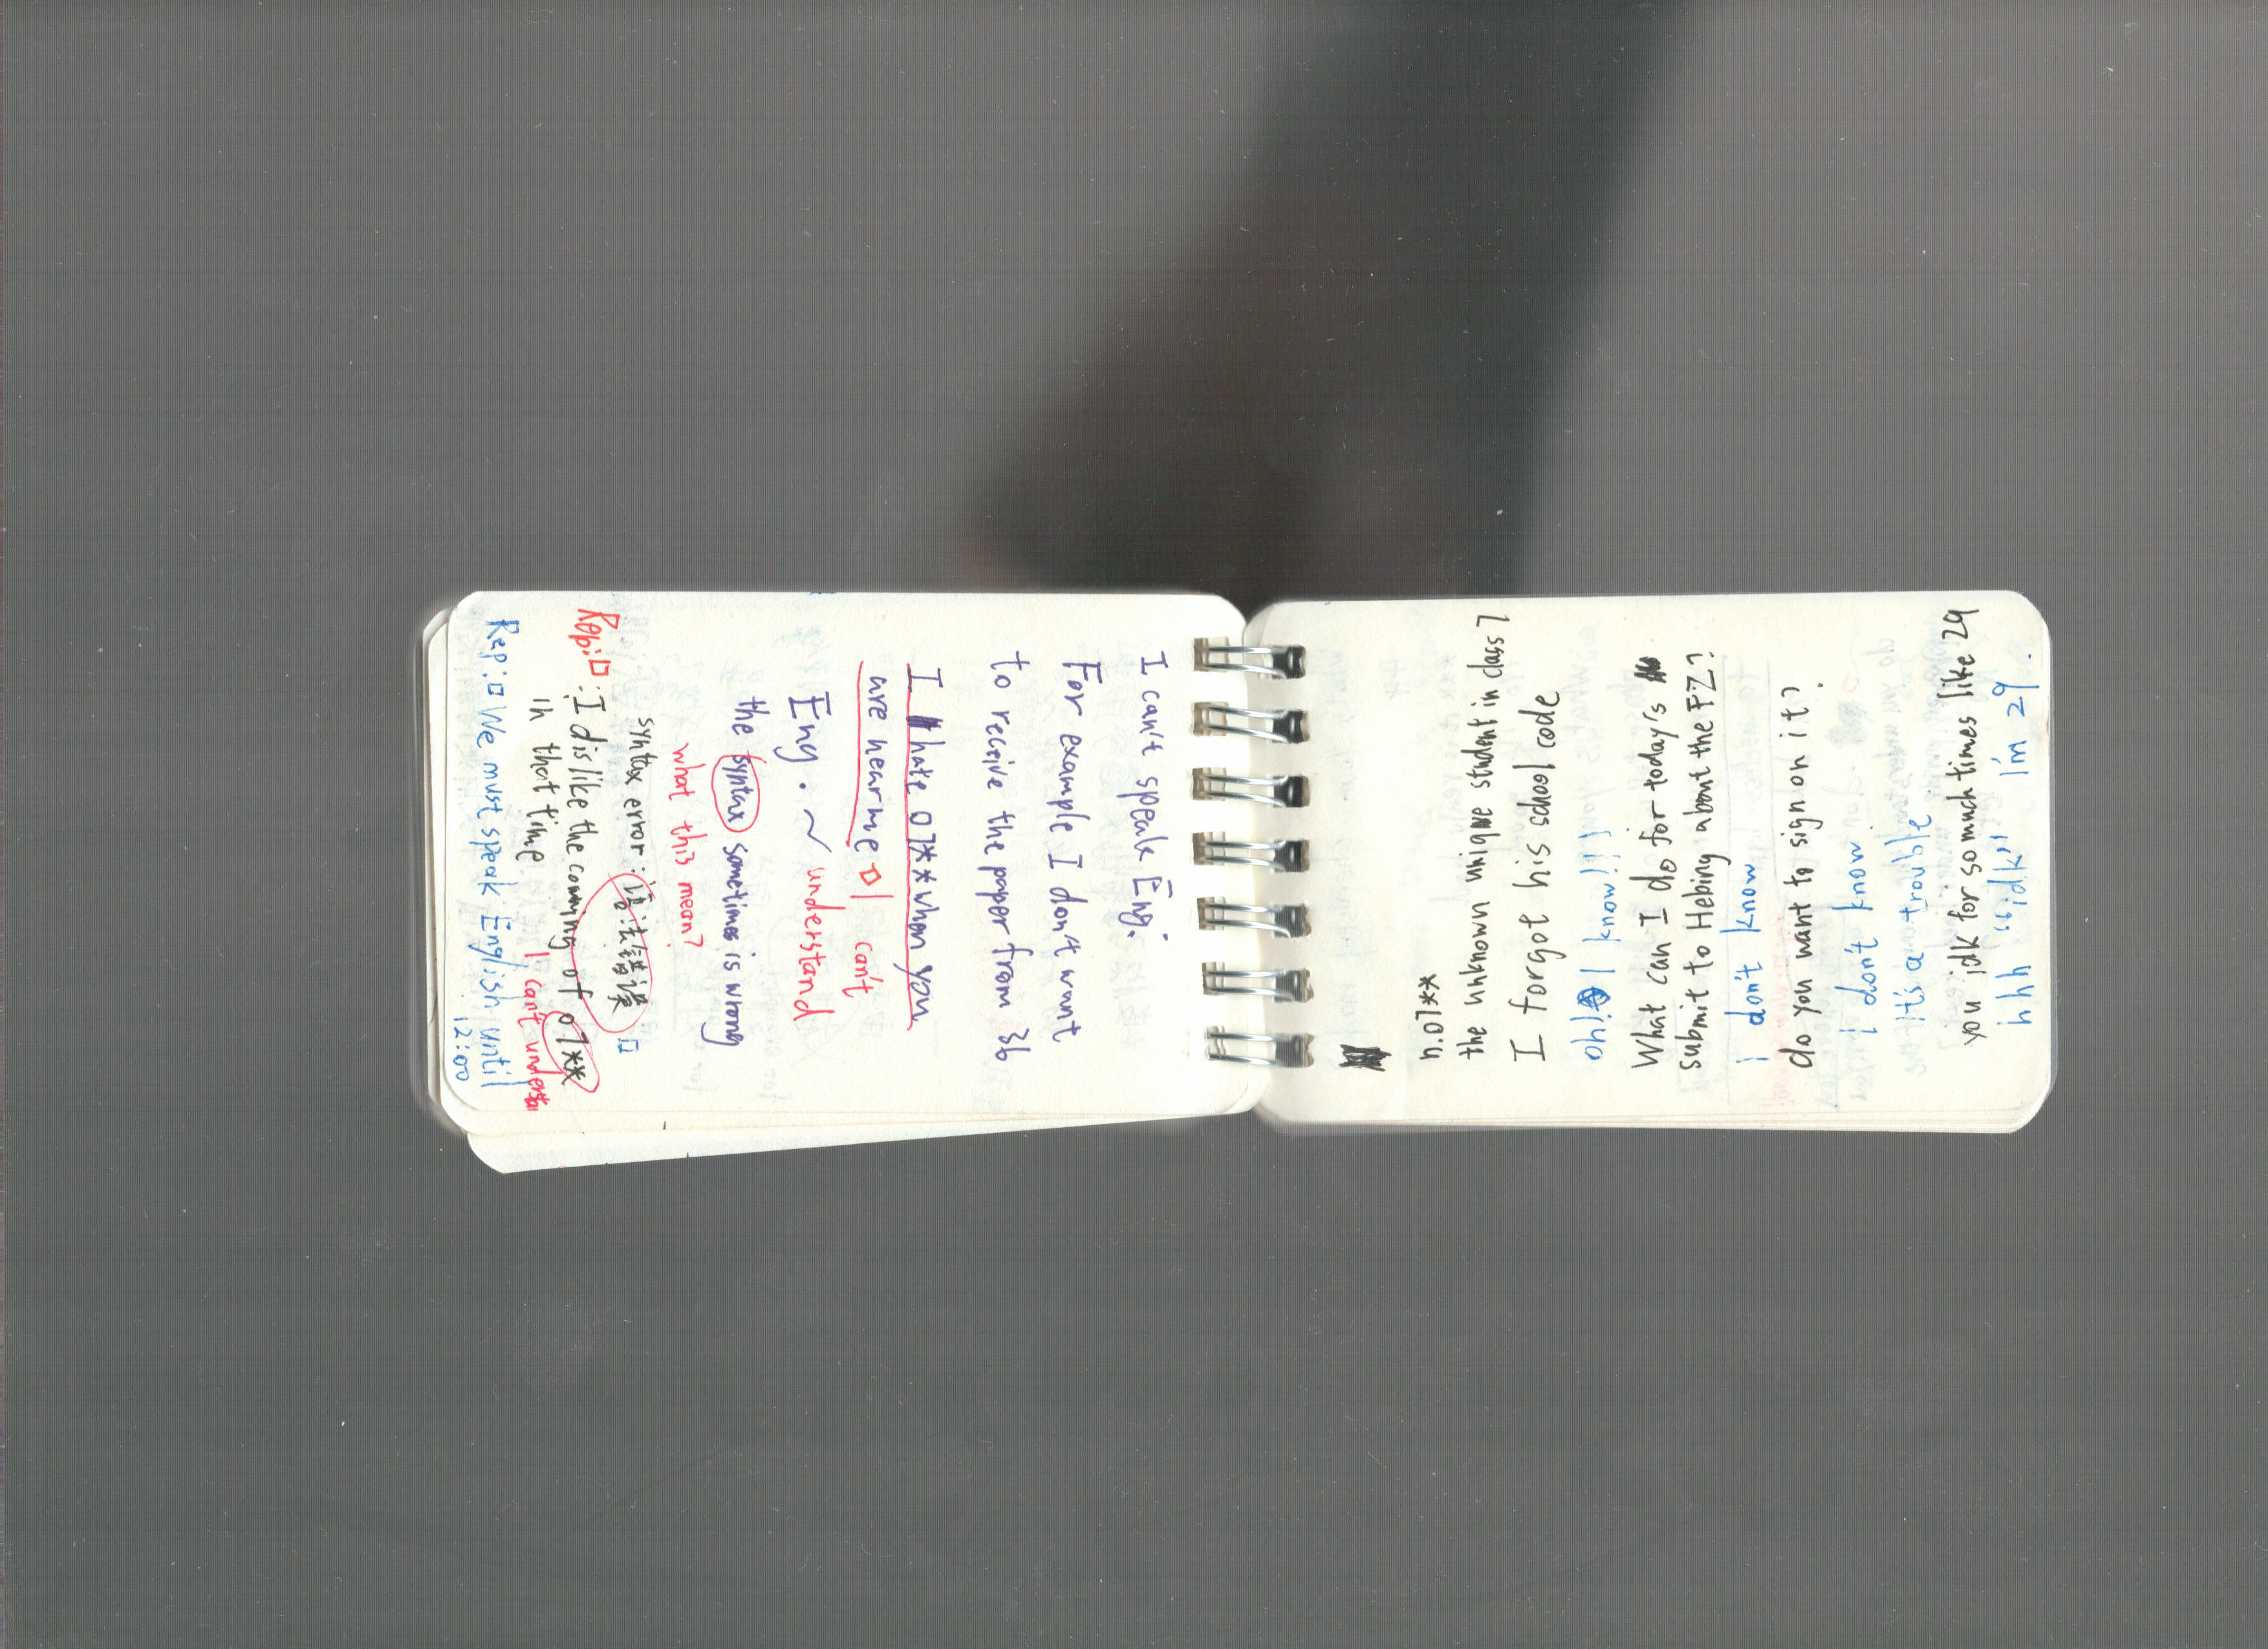 I can't speak Eng.
For example I don't want
to receive the paper from 36
I hate 07** when you
are near me
I can't
Eng. ~ understand
the syntax sometimes is wrong
what this mean?
syntax error: 语法错误
Rep: I dislike the coming of 07**
in that time I can't understand
Rep: We must speak English until
12:00
n.07**
the unknown unique student in class 7
I forgot his school code
oh! I know!!!
What can I do for today's
submit to Hebing about the FZ?
I don't know
do you want to sign on it?
I don't know
it's a trouble
you idk for so much times like 29
hhh "idk" I'm 29.